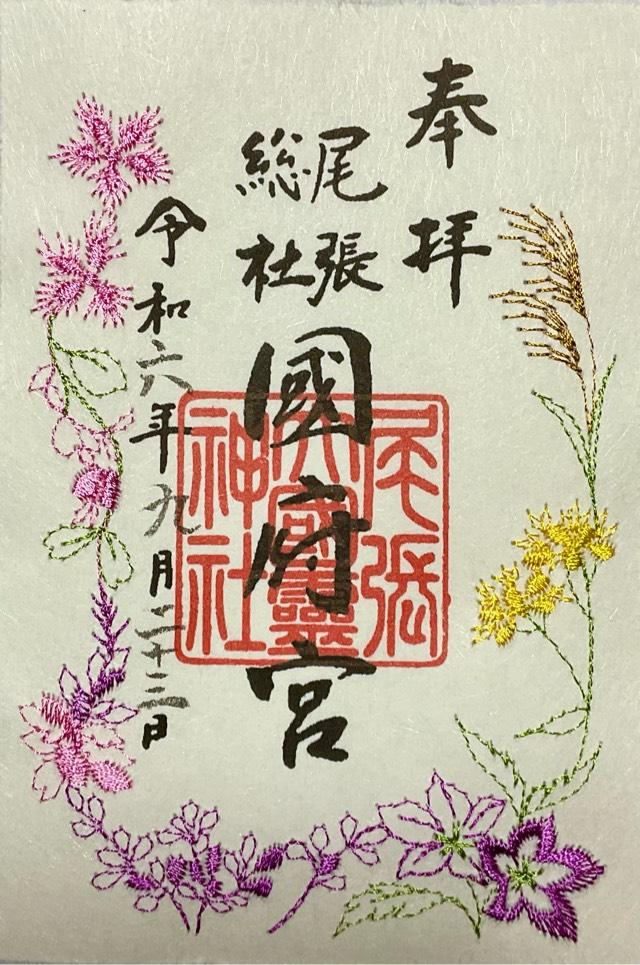 奉拝
尾張
総社
國府宮
尾張
大國霊
神社
令和六年九月二十三日